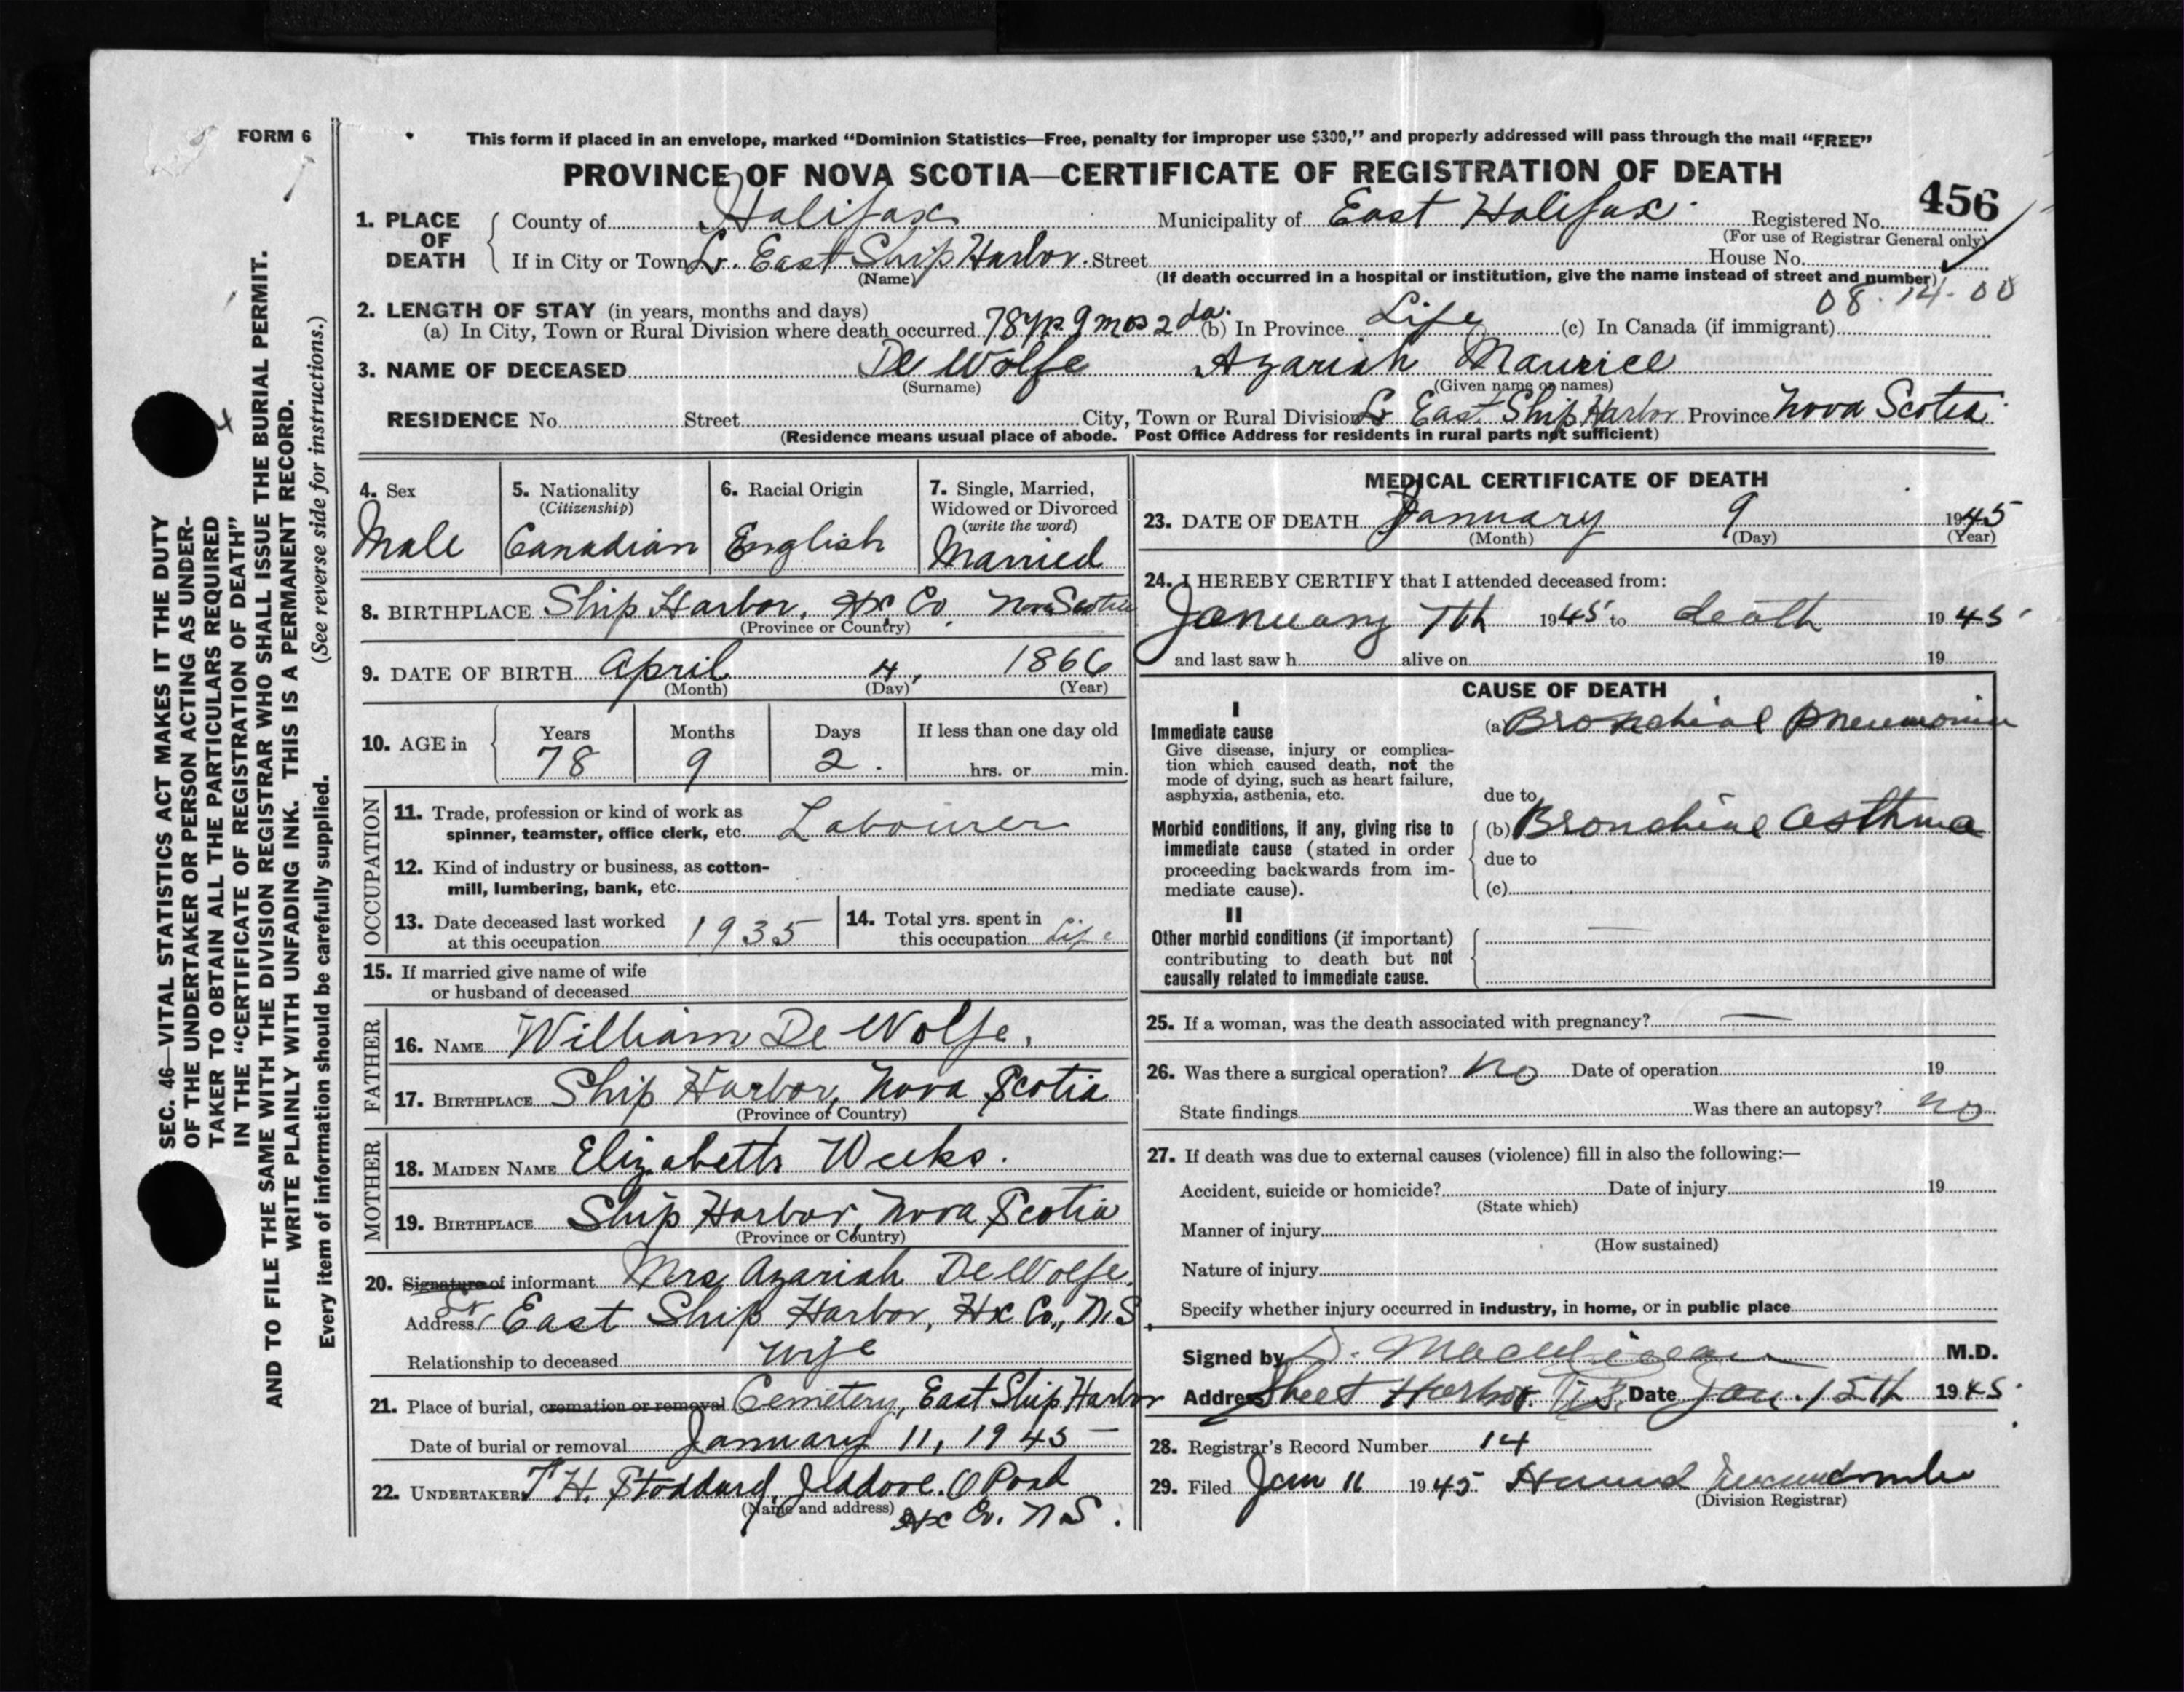 FORM 6
This form if placed in an envelope, marked “Dominion Statistics—Free, penalty for improper use $300,” and properly addressed will pass through the mail “FREE”
PROVINCE OF NOVA SCOTIA—CERTIFICATE OF REGISTRATION OF DEATH
456
1. PLACE OF DEATH
County of Halifax Municipality of East Halifax Registered No.
(For use of Registrar General only)
If in City or Town Lr. East Ship Harbor. Street House No.
(Name) (If death occurred in a hospital or institution, give the name instead of street and number)
08-14-00
2. LENGTH OF STAY (in years, months and days)
(a) In City, Town or Rural Division where death occurred 78 yrs 9 mos 2 da. (b) In Province Life (c) In Canada (if immigrant)
3. NAME OF DECEASED De Wolfe Azariah Maurice
(Surname) (Given name or names)
RESIDENCE No. Street City, Town or Rural Division Lr East Ship Harbor Province Nova Scotia
(Residence means usual place of abode. Post Office Address for residents in rural parts not sufficient)
4. Sex
Male
5. Nationality
(Citizenship)
Canadian
6. Racial Origin
English
7. Single, Married,
Widowed or Divorced
(write the word)
Married
8. BIRTHPLACE Ship Harbor, Hx Co, Nova Scotia
(Province or Country)
9. DATE OF BIRTH April 4, 1866
(Month) (Day) (Year)
10. AGE in
Years Months Days If less than one day old
78 9 2. hrs. or min.
OCCUPATION
11. Trade, profession or kind of work as
spinner, teamster, office clerk, etc. Labourer
12. Kind of industry or business, as cotton-
mill, lumbering, bank, etc.
13. Date deceased last worked
at this occupation 1935
14. Total yrs. spent in
this occupation Life
15. If married give name of wife
or husband of deceased
FATHER
16. NAME William De Wolfe.
17. BIRTHPLACE Ship Harbor, Nova Scotia
(Province or Country)
MOTHER
18. MAIDEN NAME Elizabeth Weeks.
19. BIRTHPLACE Ship Harbor, Nova Scotia
(Province or Country)
20. Signature of informant Mrs Azariah DeWolfe.
Address Lr East Ship Harbor, Hx Co., N.S.
Relationship to deceased wife
21. Place of burial, cremation or removal Cemetery, East Ship Harbor
Date of burial or removal January 11, 1945
22. UNDERTAKER T H. Stoddard, Jeddore.
(Name and address) Hx Co. N S.
MEDICAL CERTIFICATE OF DEATH
23. DATE OF DEATH January 9 1945
(Month) (Day) (Year)
24. I HEREBY CERTIFY that I attended deceased from:
January 7th 1945 to death 1945
and last saw h alive on 19
CAUSE OF DEATH
I
Immediate cause
Give disease, injury or complica-
tion which caused death, not the
mode of dying, such as heart failure,
asphyxia, asthenia, etc.
(a) Bronchial pneumonia
due to
Morbid conditions, if any, giving rise to
immediate cause (stated in order
proceeding backwards from im-
mediate cause).
(b) Bronchial asthma
due to
(c)
II
Other morbid conditions (if important)
contributing to death but not
causally related to immediate cause.
25. If a woman, was the death associated with pregnancy? —
26. Was there a surgical operation? no Date of operation 19
State findings Was there an autopsy? no
27. If death was due to external causes (violence) fill in also the following:—
Accident, suicide or homicide? Date of injury 19
(State which)
Manner of injury
(How sustained)
Nature of injury
Specify whether injury occurred in industry, in home, or in public place
Signed by D. M.D.
Address Sheet Harbor. N.S. Date Jan. 15th 1945.
28. Registrar's Record Number 14
29. Filed Jan 11 1945.
(Division Registrar)
SEC. 46—VITAL STATISTICS ACT MAKES IT THE DUTY
OF THE UNDERTAKER OR PERSON ACTING AS UNDER-
TAKER TO OBTAIN ALL THE PARTICULARS REQUIRED
IN THE “CERTIFICATE OF REGISTRATION OF DEATH”
AND TO FILE THE SAME WITH THE DIVISION REGISTRAR WHO SHALL ISSUE THE BURIAL PERMIT.
WRITE PLAINLY WITH UNFADING INK. THIS IS A PERMANENT RECORD.
Every item of information should be carefully supplied. (See reverse side for instructions.)